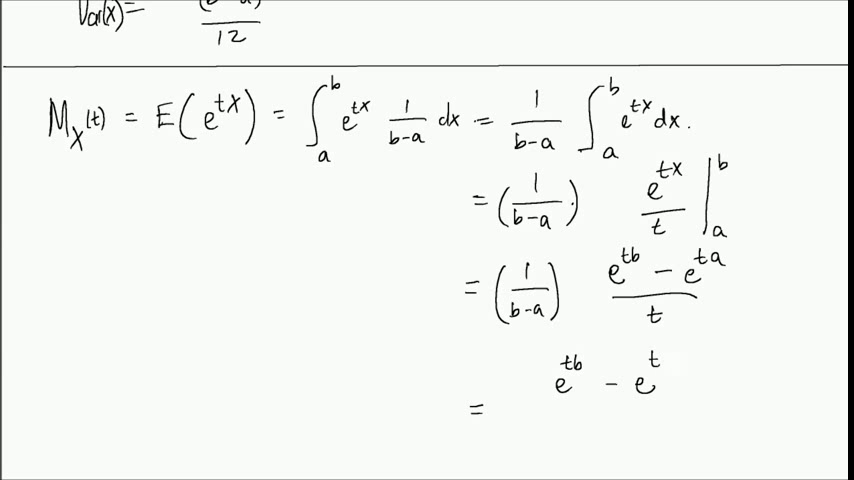 Var(X) = (b-a) / 12
M_X(t) = E(e^{tX}) = ∫_a^b e^{tx} 1/(b-a) dx = 1/(b-a) ∫_a^b e^{tx} dx.
= (1/(b-a)) · e^{tx}/t |_a^b
= (1/(b-a)) (e^{tb} - e^{ta})/t
= e^{tb} - e^{t}